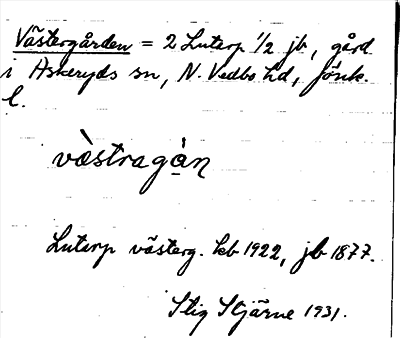 Västergården = 2 Luterp 1/2 jb, gård
i Askeryds sn, N. Vedbo hd, Jönk.
l.
västragạ̀n
Luterp västerg. kb 1922, jb 1877.
Stig Stjärne 1931.